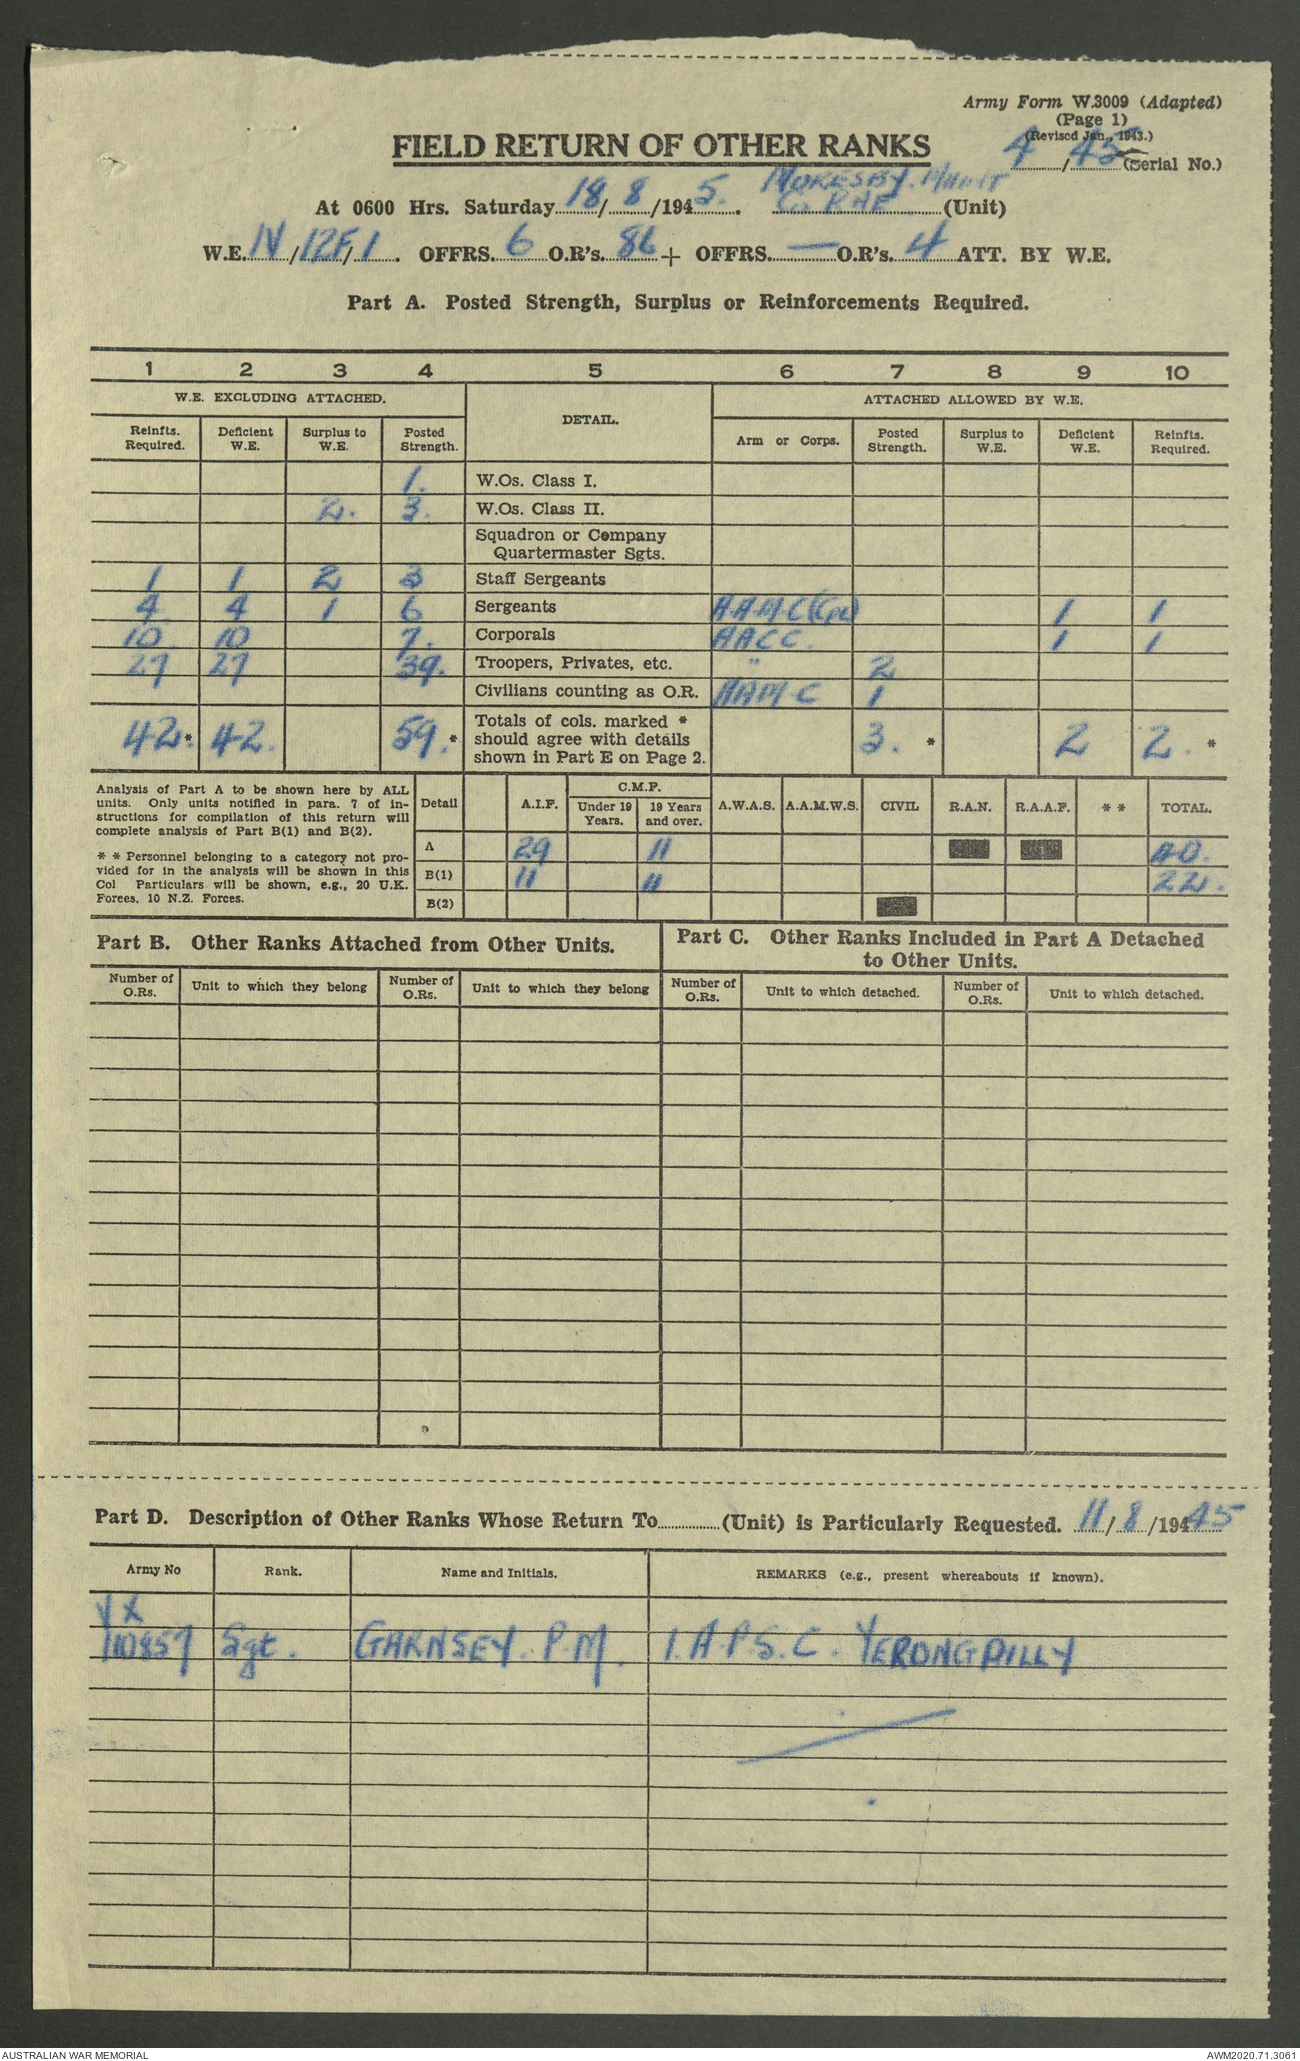 Army Form W.3009 (Adapted)
(Page 1)
(Revised Jan., 1943.)
FIELD RETURN OF OTHER RANKS
4/45 (Serial No.)
At 0600 Hrs. Saturday 18/8/1945. MORESBY. Maint Co. RAE (Unit)
W.E. IV/12F/1. OFFRS. 6 O.R's. 86 + OFFRS. — O.R's. 4 ATT. BY W.E.
Part A. Posted Strength, Surplus or Reinforcements Required.
1 2 3 4 5 6 7 8 9 10
W.E. EXCLUDING ATTACHED. DETAIL. ATTACHED ALLOWED BY W.E.
Reinfts. Required. Deficient W.E. Surplus to W.E. Posted Strength. Arm or Corps. Posted Strength. Surplus to W.E. Deficient W.E. Reinfts. Required.
1. W.Os. Class I.
2. 3. W.Os. Class II.
Squadron or Company
Quartermaster Sgts.
1 1 2 3 Staff Sergeants
4 4 1 6 Sergeants A.A.M.C (Cpl) 1 1
10. 10 7. Corporals AACC. 1 1
27 27 39. Troopers, Privates, etc. " 2
Civilians counting as O.R. AAMC 1
42.* 42. 59.* Totals of cols. marked * should agree with details shown in Part E on Page 2. 3. * 2 2. *
Analysis of Part A to be shown here by ALL
units. Only units notified in para. 7 of in-
structions for compilation of this return will
complete analysis of Part B(1) and B(2).
* * Personnel belonging to a category not pro-
vided for in the analysis will be shown in this
Col Particulars will be shown, e.g., 20 U.K.
Forces, 10 N.Z. Forces.
Detail A.I.F. C.M.F. Under 19 Years. 19 Years and over. A.W.A.S. A.A.M.W.S. CIVIL R.A.N. R.A.A.F. * * TOTAL.
A 29 11 40.
B(1) 11 11 22.
B(2)
Part B. Other Ranks Attached from Other Units.
Part C. Other Ranks Included in Part A Detached
to Other Units.
Number of O.Rs. Unit to which they belong Number of O.Rs. Unit to which they belong Number of O.Rs. Unit to which detached. Number of O.Rs. Unit to which detached.
Part D. Description of Other Ranks Whose Return To (Unit) is Particularly Requested. 11/8/19445
Army No Rank. Name and Initials. REMARKS (e.g., present whereabouts if known).
VX
110857 Sgt. GARNSEY. P.M. 1.A.P.S.C. YERONGPILLY
AUSTRALIAN WAR MEMORIAL
AWM2020.71.3061